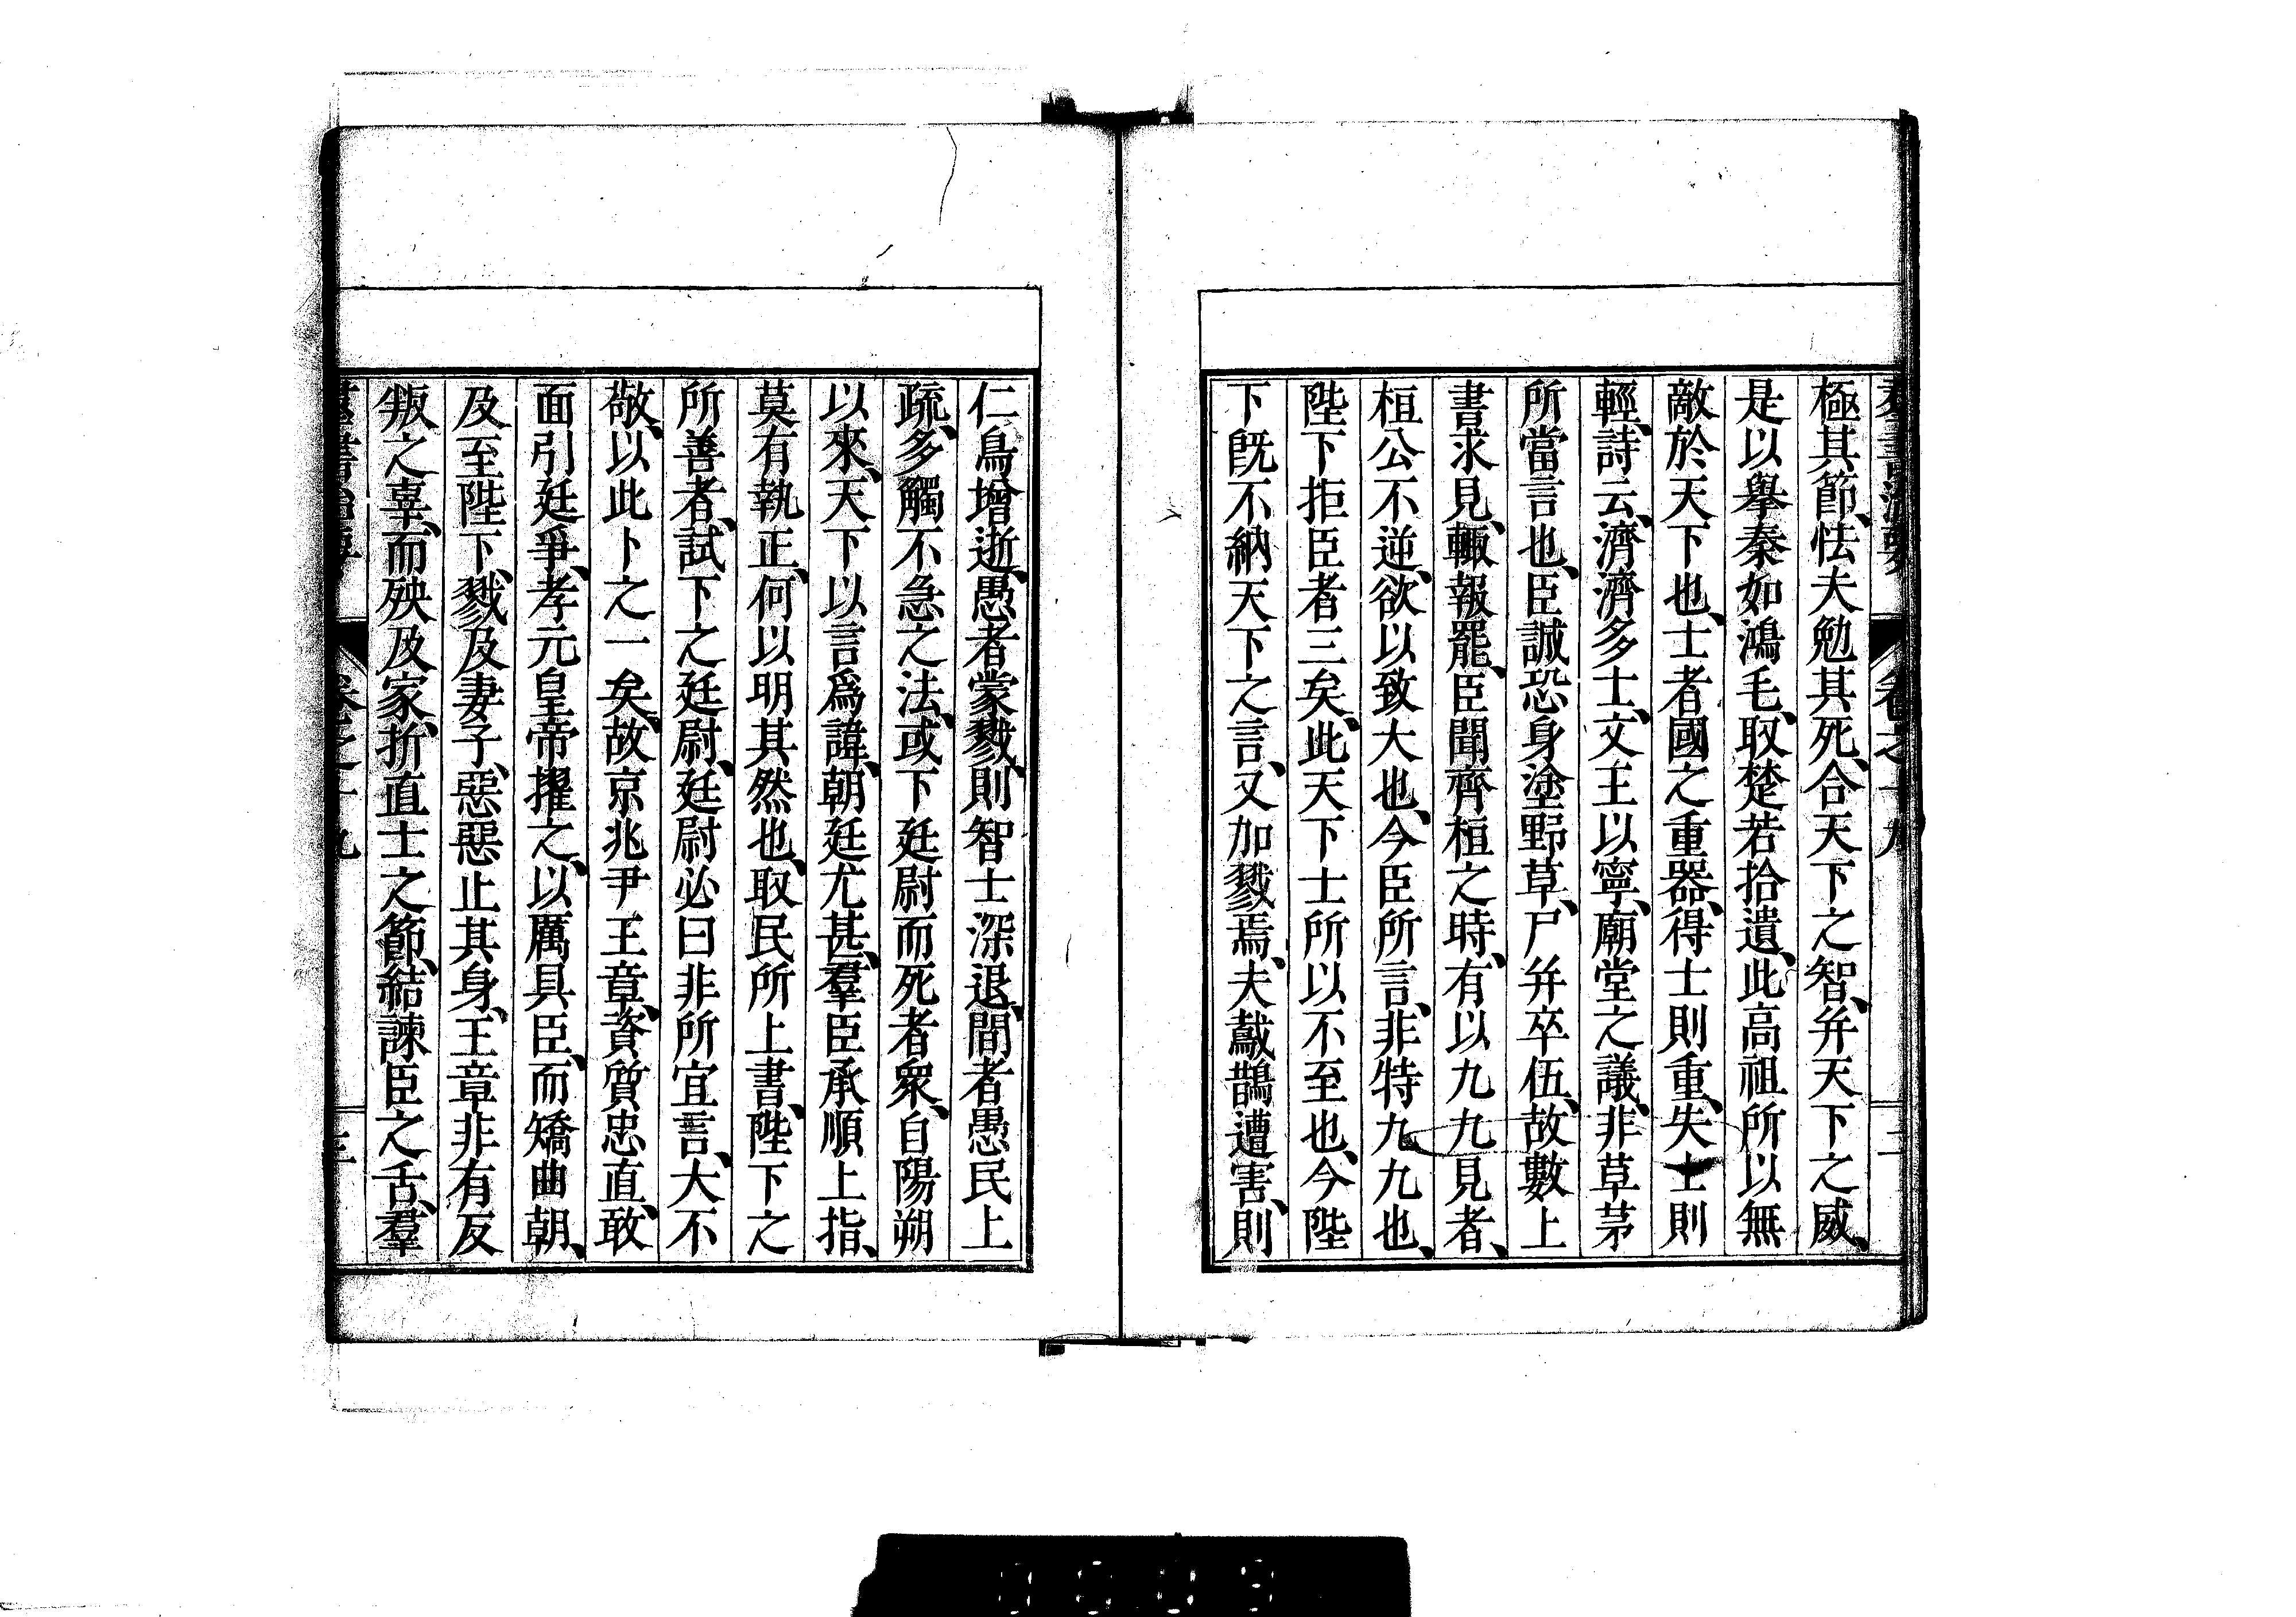 極其節、怯夫勉其死、合天下之智、幷天下之威、
是以擧秦如鴻毛、取楚若拾遺、此高祖所以無
敵於天下也、士者國之重器、得士則重、失士則
輕、詩云、濟濟多士、文王以寧、廟堂之議、非草茅
所當言也、臣誠恐身塗野草、尸幷卒伍、故數上
書求見、輙報罷、臣聞齊桓之時、有以九九見者、
桓公不逆、欲以致大也、今臣所言、非特九九也、
陛下拒臣者三矣、此天下士所以不至也、今陛
下旣不納天下之言、又加戮焉、夫鳶鵲遭害、則
仁鳥增逝、愚者蒙戮、則智士深退、間者愚民上
疏、多觸不急之法、或下廷尉而死者衆、自陽朔
以來、天下以言爲諱、朝廷尤甚、羣臣承順上指、
莫有執正、何以明其然也、取民所上書、陛下之
所善者、試下之廷尉、廷尉必曰非所宜言、大不
敬、以此卜之一矣、故京兆尹王章、資質忠直、敢
面引廷爭、孝元皇帝擢之、以厲具臣、而矯曲朝、
及至陛下、戮及妻子、惡惡止其身、王章非有反
叛之辜、而殃及家、折直士之節、結諫臣之舌、羣
卷之十九